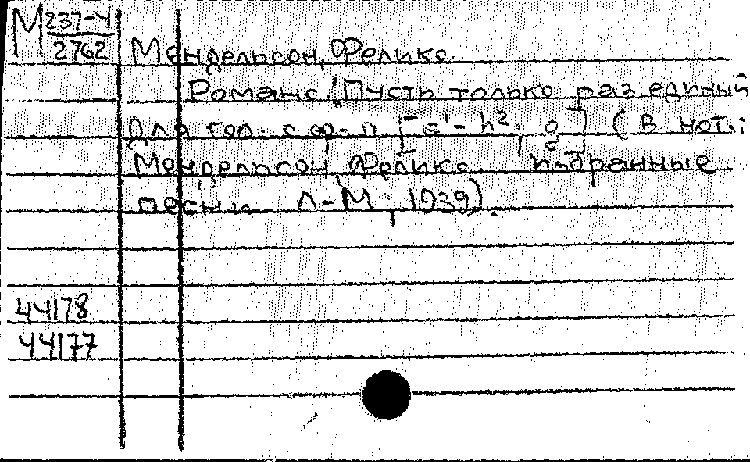 М 237-4
2762
Мендельсон, Феликс.
Романс. Пусть только раз единый
Для гол. с ф-п [ h², ] (В нот.:
Мендельсон, Феликс. Избранные
песни. Л-М, 1939).
44178
44177